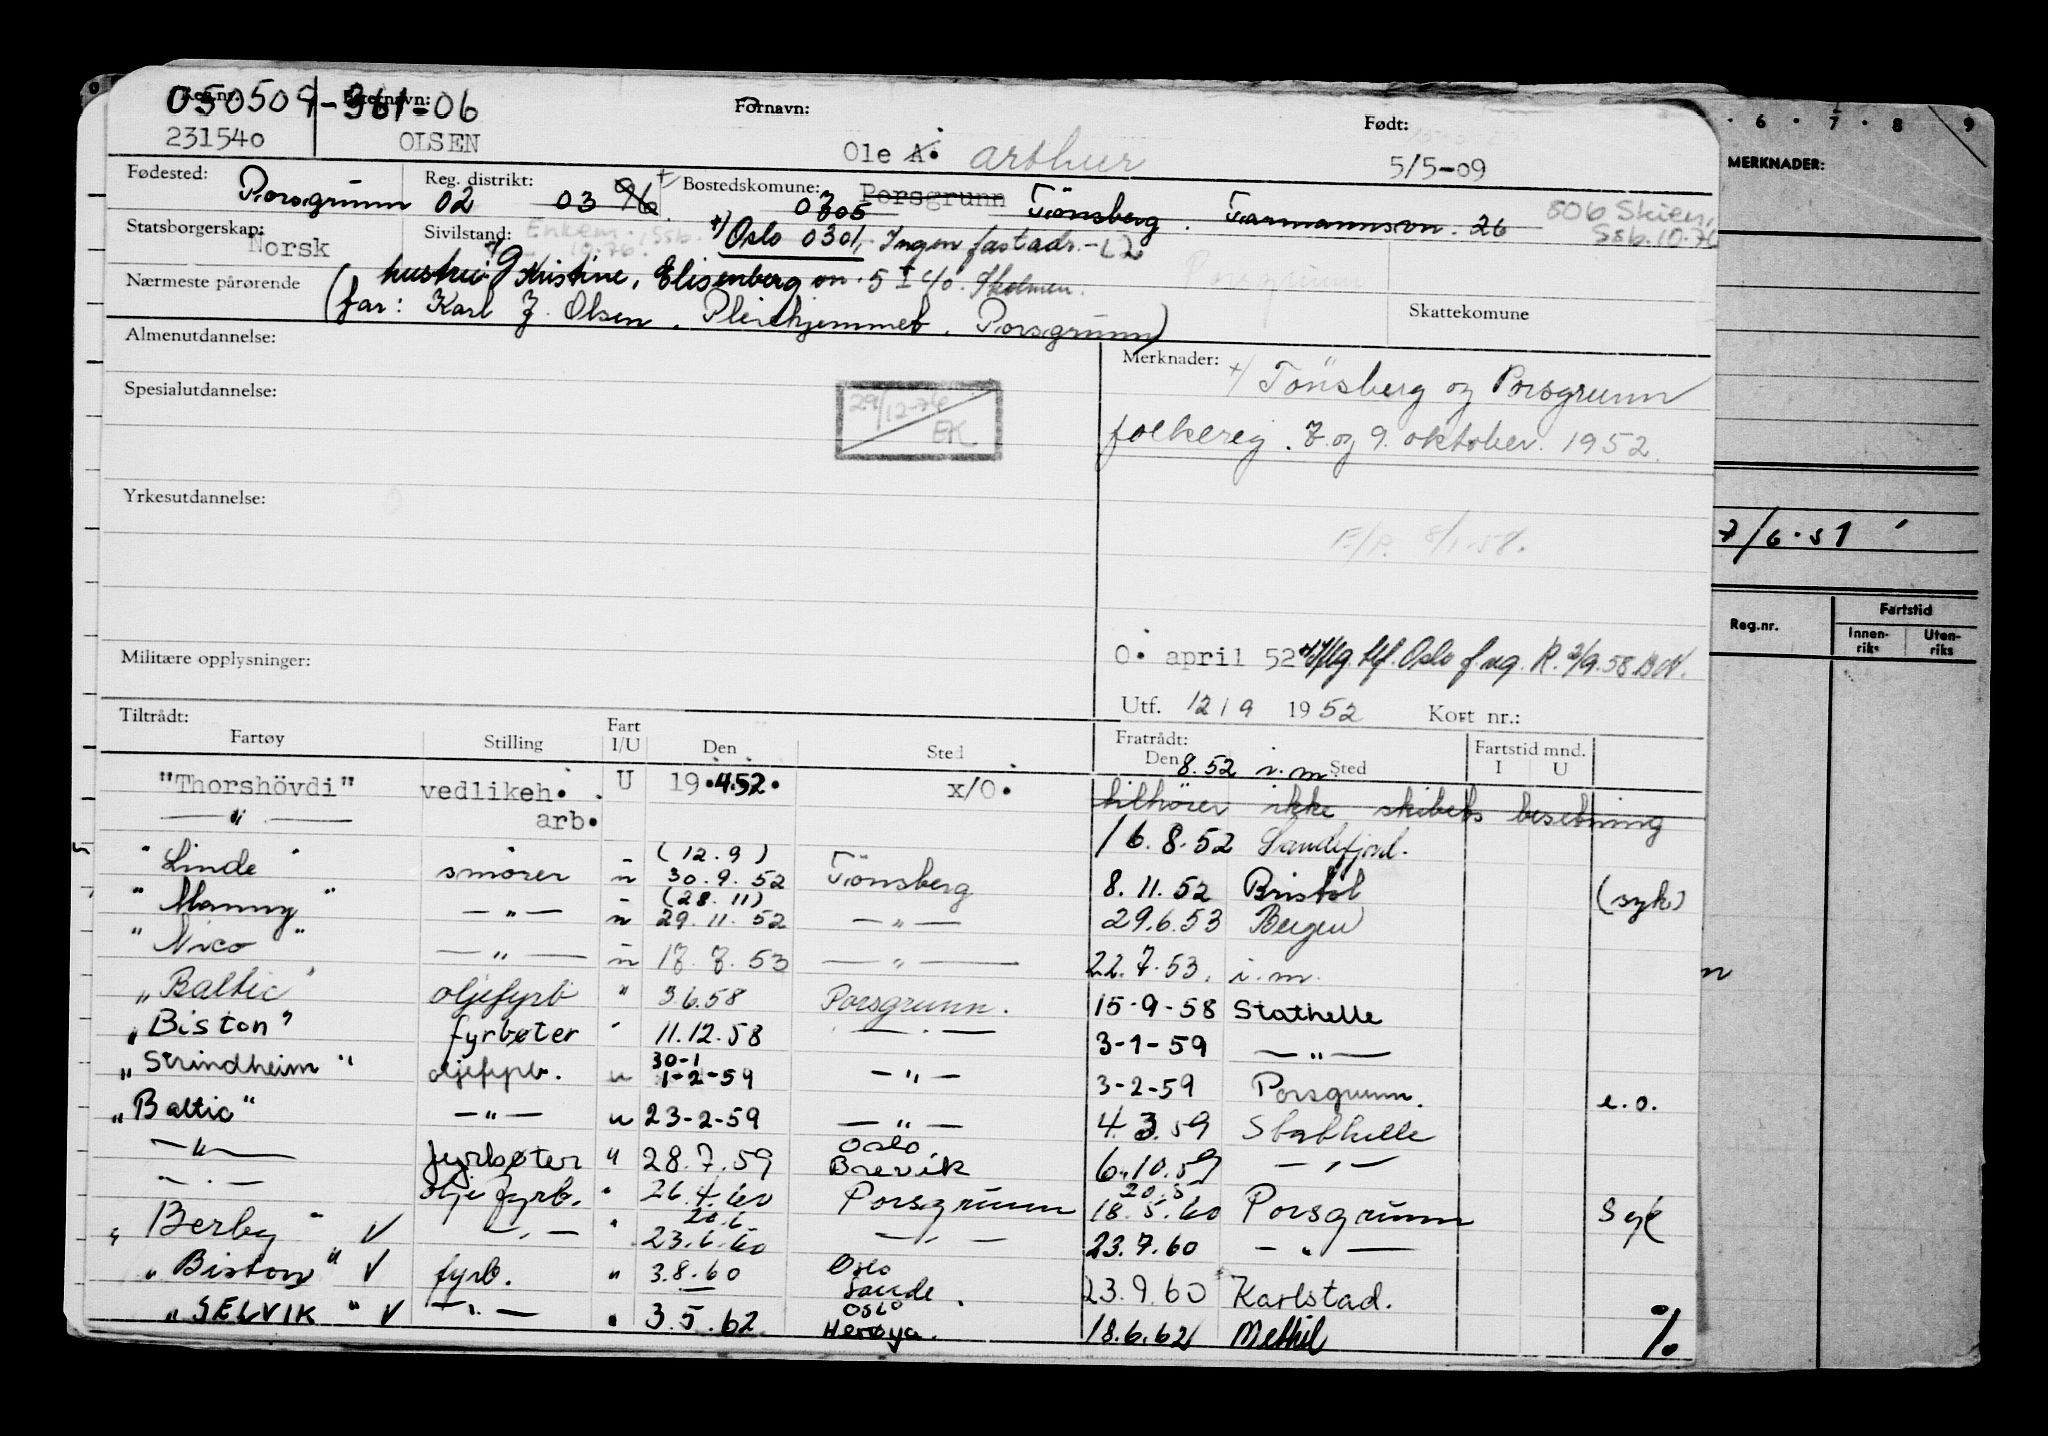 050509-361-06
Reg.nr.: Etternavn: Fornavn: Født:
231540 OLSEN Ole A. Arthur 5/5-09
Fødested: Porsgrunn Reg. distrikt: 02 03 96 Bostedskomune: Porsgrunn 0705 Tönsberg. Farmannsvn. 26 806 Skien,
Ssb. 10.76
Statsborgerskap: Norsk Sivilstand: Enkem. Ssb. 10.76. +) Oslo 0301, Ingen fast adr.
Nærmeste pårørende hustru: Kristine, Elisenberg vn. 5 I c/o. Skolmen.
(far: Karl J. Olsen, Pleiehjemmet, Porsgrunn)
Porsgrunn
Skattekomune
Almenutdannelse:
Merknader: +) Tönsberg og Porsgrunn
folkereg. 7. og 9. oktober. 1952.
Spesialutdannelse:
29/12-76
EK.
Yrkesutdannelse:
F./P. 8/1-58.
Militære opplysninger:
O. april 52 Oslo f.reg. R. 3/9.58
Utf. 12/9 1952 Kort nr.:
Tiltrådt: Fratrådt:
Fartøy Stilling Fart I/U Den Sted Den Sted Fartstid mnd. I U
"Thorshövdi" vedlikeh. arb. U 19.4.52. x/O. 8.52 i.m.
tilhører ikke skibets besetning
— " — 16.8.52 Sandefjord.
"Linde" smører u (12.9) 30.9.52 Tönsberg 8.11.52 Bristol (syk)
"Manny" — " — u (28.11) 29.11.52 — " — 29.6.53 Bergen
"Nico" — " — u 17.7.53 — " — 22.7.53. i.m.
"Baltic" oljefyrb " 3.6.58 Porsgrunn. 15-9-58 Stathelle
"Biston" fyrbøter " 11.12.58 — " — 3-1-59 — " —
"Strindheim" oljefyrb. u 30-1 1-2-59 — " — 3-2-59 Porsgrunn. e.o.
"Baltic" — " — u 23-2-59 — " — 4.3.59 Stathelle
— " — fyrbøter " 28.7.59 Oslo Brevik 6.10.59 — " —
— " — olje fyrb. " 26.4.60 Porsgrunn 20.5 18.5.60 Porsgrunn Syk
"Berby" V — " — " 20.6 23.6.60 — " — 23.7.60 — " —
"Biston" V fyrb. " 3.8.60 Oslo Sande. 23.9.60 Karlstad.
"SELVIK" V — " — " 3.5.62 Oslo Herøya. 18.6.62 Methil %
6 . 7 . 8 9
MERKNADER:
7/6.51
Reg.nr. Fartstid
Innen-riks Uten-riks